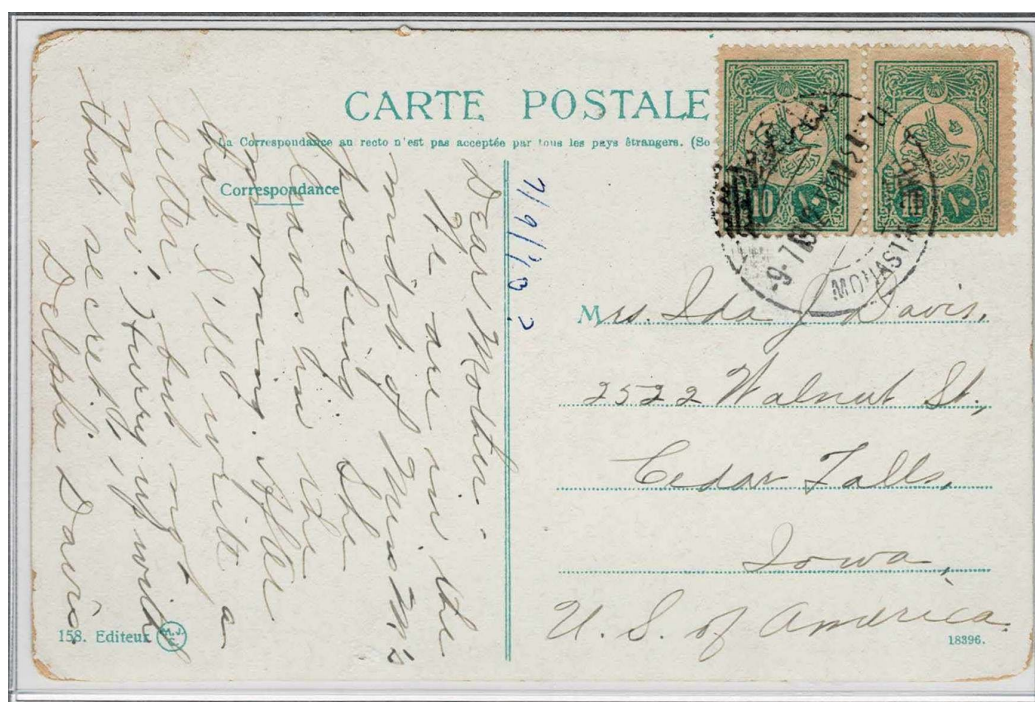 CARTE POSTALE
La Correspondance au recto n'est pas acceptée par tous les pays étrangers. (Se
Correspondance
Dear Mother:
We are in the
midst of Miss M's
packing. She
leaves in the
morning. After
that I'll write a
letter but not
now. Hurry up with
that secret,
Delpha Davis
7/9/10?
10
10
MONASTIR
Mrs. Ida J. Davis,
2522 Walnut St,
Cedar Falls,
Iowa,
U. S. of America.
158. Editeur
18396.